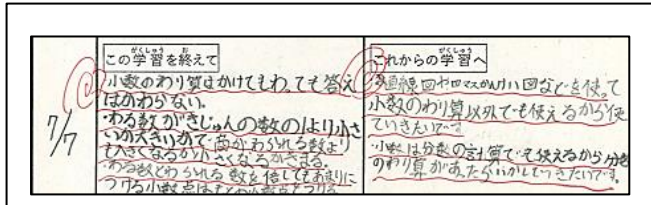 この学習を終えて
がくしゅう お
小数のわり算はかけてもわっても答え
はかわらない。
・わる数がきじゅんの数の1より小さ
いか大きいかで商がわられる数より
大きくなるか小さくなるかきまる。
・わる数とわられる数を倍してもあまりに
つける小数点はもとの小数点をつける
これからの学習へ
がくしゅう
数直線図や四マスかんけい図などを使って
小数のわり算以外でも使えるから使
ていきたいです
小数は分数の計算でも使えるから分数
のわり算があったらいかしていきたいです。
7/7